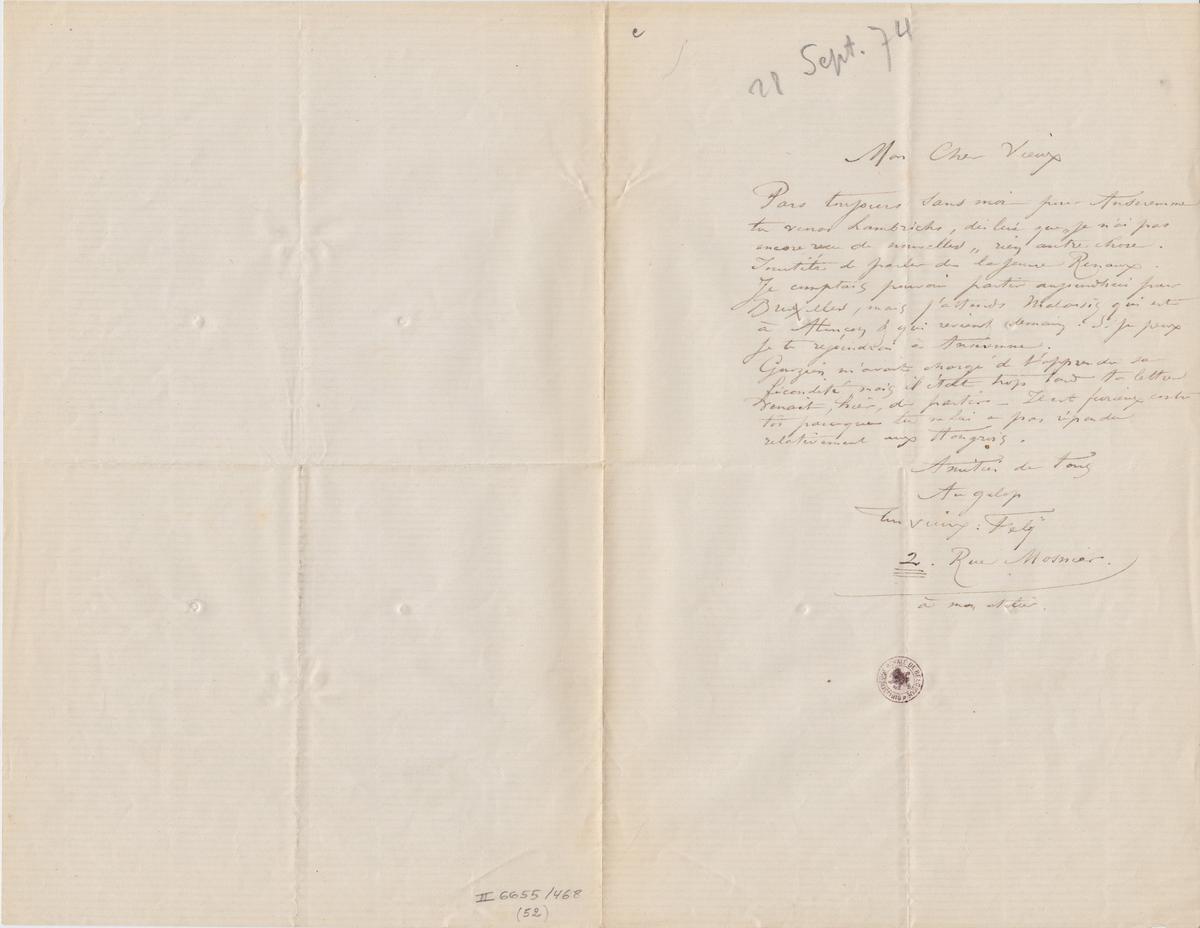 28 Sept. 74
Mon Cher Vieux
Pars toujours sans moi pour Anseremme
tu verras Lambrichs, dis lui que je n'ai pas
encore reçu de nouvelles, rien autre chose.
Inutile de parler de la jeune Renaux.
Je comptais pouvoir partir aujourd'hui pour
Bruxelles, mais j'attends Malassis qui est
à Alençon & qui revient demain. Si je peux
je te rejoindrai à Anseremme.
m'avait chargé de t'apprendre sa
fécondité mais il était trop tard ta lettre
venait, hier, de partir – Il est furieux contre
toi parceque tu ne lui a pas répondu
relativement aux Hongrois.
Amitiés de tous
Au galop
Ton vieux: Fély
2. Rue Mosnier.
à mon atelier.
BIBLIOTHÈQUE ROYALE DE BELGIQUE
II 6655/468
(52)